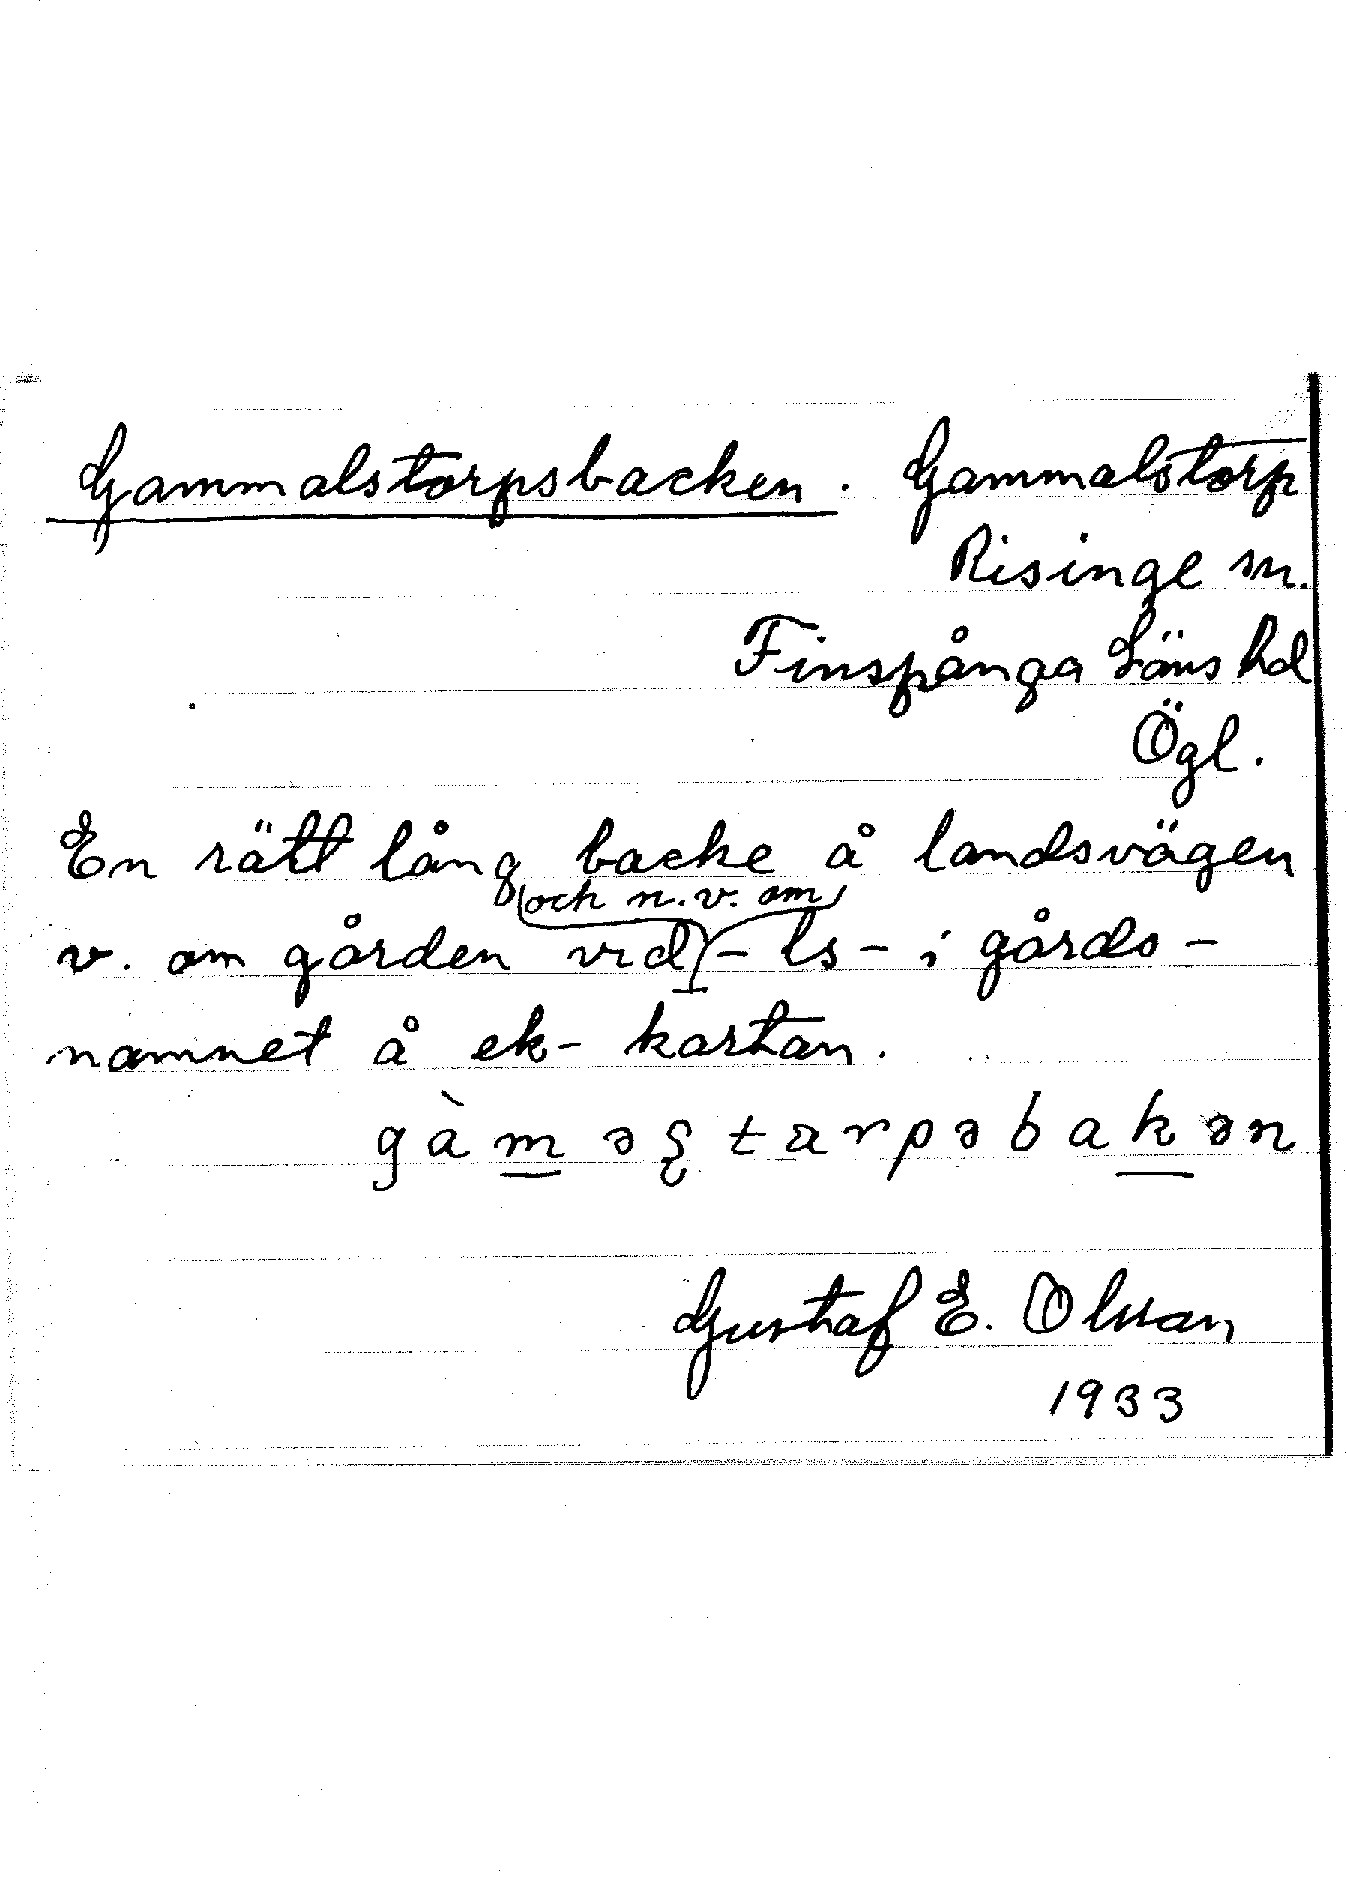 Gammalstorpsbacken. Gammalstorp
Risinge sn.
Finspånga Läns hd
Ögl.
En rätt lång backe å landsvägen
och n.v. om
v. om gården vid -ls- i gårds-
namnet å ek-kartan.
Gustaf E. Olsson
1933